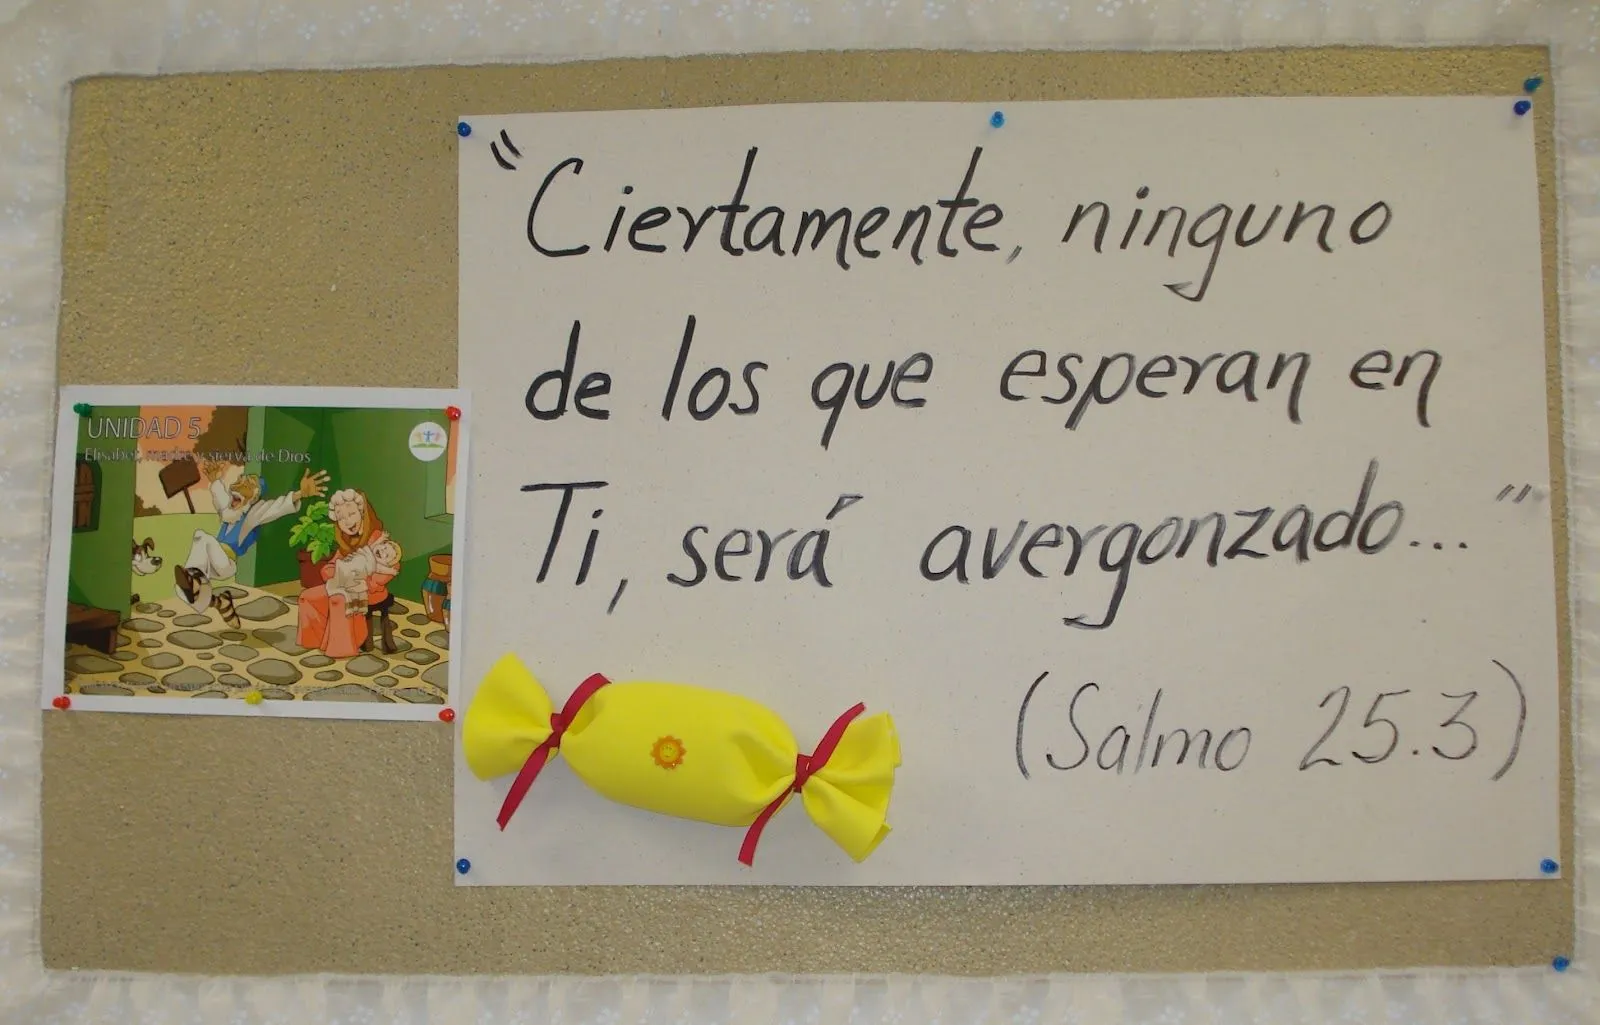 “Ciertamente, ninguno
de los que esperan en
Ti, será avergonzado...”
(Salmo 25.3)
UNIDAD 5
Elisabet, madre y sierva de Dios